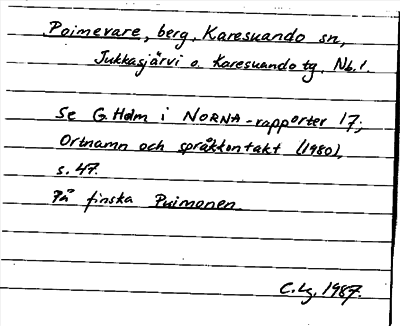 Poimevare, berg, Karesuando sn,
Jukkasjärvi o. Karesuando tg. Nb.!
Se G. Holm i NORNA-rapporter 17;
Ortnamn och språkkontakt (1980),
s. 47.
På finska Puimonen.
C. Lg. 1987.